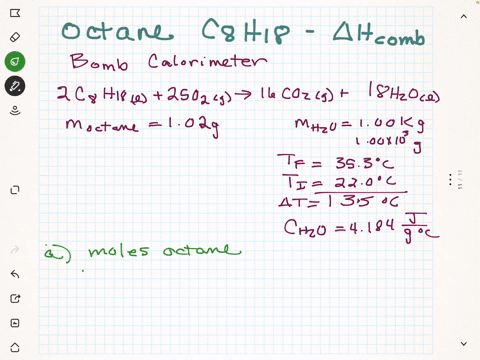 Octane C8H18 - ΔHcomb
Bomb Calorimeter
2C8H18(l) + 25O2(g) → 16CO2(g) + 18H2O(l)
moctane = 1.02g
mH2O = 1.00Kg
1.00x10³ g
TF = 35.3°C
TI = 22.0°C
ΔT = 13.5 °C
CH2O = 4.184 J/g°C
a) moles octane